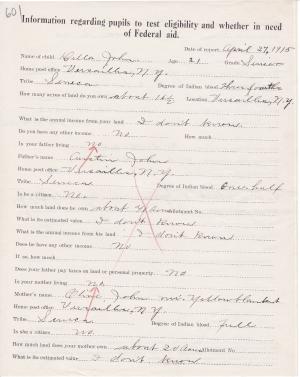 601
Information regarding pupils to test eligibility and whether in need
of Federal aid.
Date of report, April 27, 1915
Name of child, John Age, 21 Grade, Senior
Home post office, Versailles, N.Y.
Tribe, Seneca Degree of Indian blood, Three fourths
How many acres of land do you own, about 16 Location, Versailles, N.Y.
What is the annual income from your land, I don't know
Do you have any other income, No How much,
Is your father living, No
Father's name, Austin John
Home post office, Versailles, N.Y.
Tribe, Seneca Degree of Indian blood, One half
Is he a citizen, No.
How much land does he own, about Allotment No.
What is its estimated value, I don't know
What is the annual income from his land, I don't know
Does he have any other income, No
If so, how much,
Does your father pay taxes on land or personal property, No
Is your mother living, No
Mother's name, Olive John nee Yellowblanket
Home post office, Versailles, N.Y.
Tribe, Seneca Degree of Indian blood, full
Is she a citizen, No.
How much land does your mother own, about 20 Allotment No.
What is its estimated value, I don't know